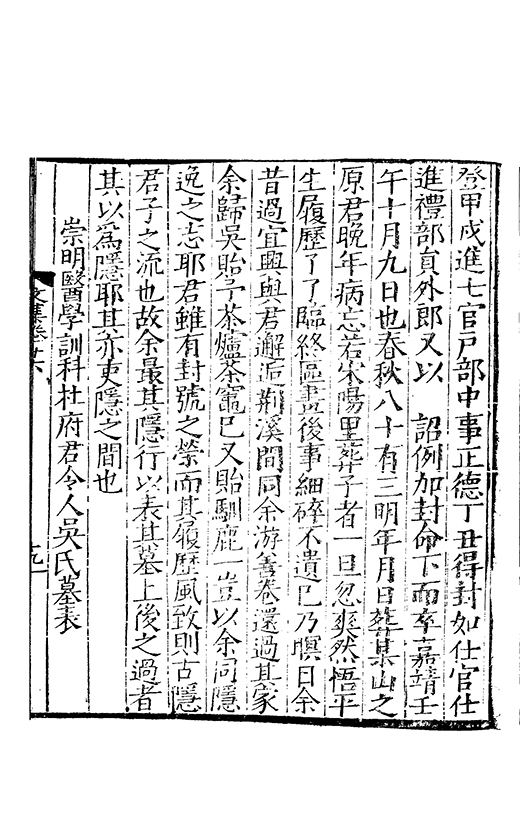 登甲戌進士官戶部中事正德丁丑得封如仕官仕
進禮部負外郎又以　詔例加封命下而卒嘉靖壬
午十月九日也春秋八十有三明年月日葬某山之
原君晚年病忘若宋陽里華子者一旦忽爽然悟平
生履歷了了臨終區畫後事細碎不遺已乃瞑目余
昔過宜興與君邂逅荆溪間同余游善卷還過其家
余歸吳貽予茶爐茶竈已又貽馴鹿一豈以余同隱
逸之志耶君雖有封號之榮而其履歷風致則古隱
君子之流也故余最其隱行以表其墓上後之過者
其以為隱耶其亦吏隱之間也
崇明醫學訓科杜府君令人吳氏墓表
文集卷廿六